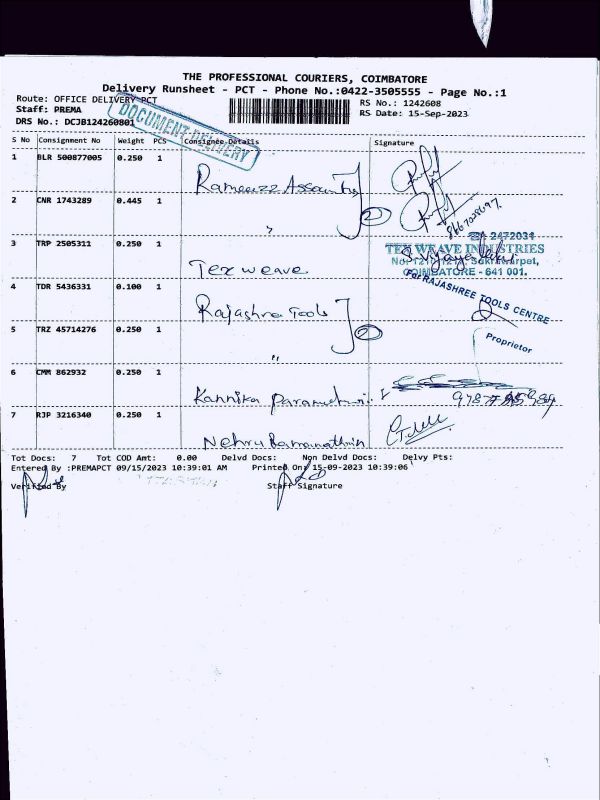 THE PROFESSIONAL COURIERS, COIMBATORE
Delivery Runsheet - PCT - Phone No.:0422-3505555 - Page No.:1
Route: OFFICE DELIVERY PCT
RS No.: 1242608
Staff: PREMA
RS Date: 15-Sep-2023
DRS No.: DCJB124260801
DOCUMENT DELIVERY
S No Consignment No Weight PCS Consignee Details Signature
1 BLR 500877005 0.250 1
2 CNR 1743289 0.445 1 " 2
8667028697
☎ 2472031
3 TRP 2505311 0.250 1 Tex weave
TEX WEAVE INDUSTRIES
COIMBATORE - 641 001.
4 TDR 5436331 0.100 1 Rajashree Tools
For RAJASHREE TOOLS CENTRE
5 TRZ 45714276 0.250 1 " 2
Proprietor
6 CMM 862932 0.250 1 Kannika
7 RJP 3216340 0.250 1 Nehru Ramanathan
Tot Docs: 7 Tot COD Amt: 0.00 Delvd Docs: Ngn Delvd Docs: Delvy Pts:
Entered By :PREMAPCT 09/15/2023 10:39:01 AM Printed On: 15-09-2023 10:39:06
Verified By Staff Signature